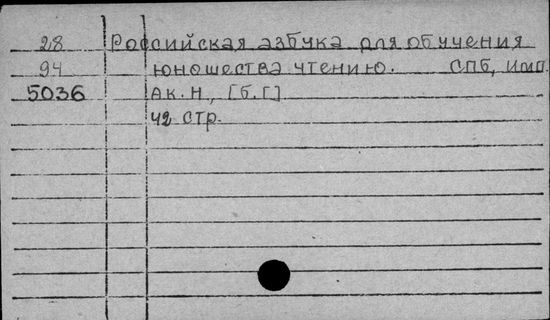 28 Российская азбука для обучения
94 юношества чтению. СПб, имп.
5036 Ак. Н., [б. г]
42 стр.